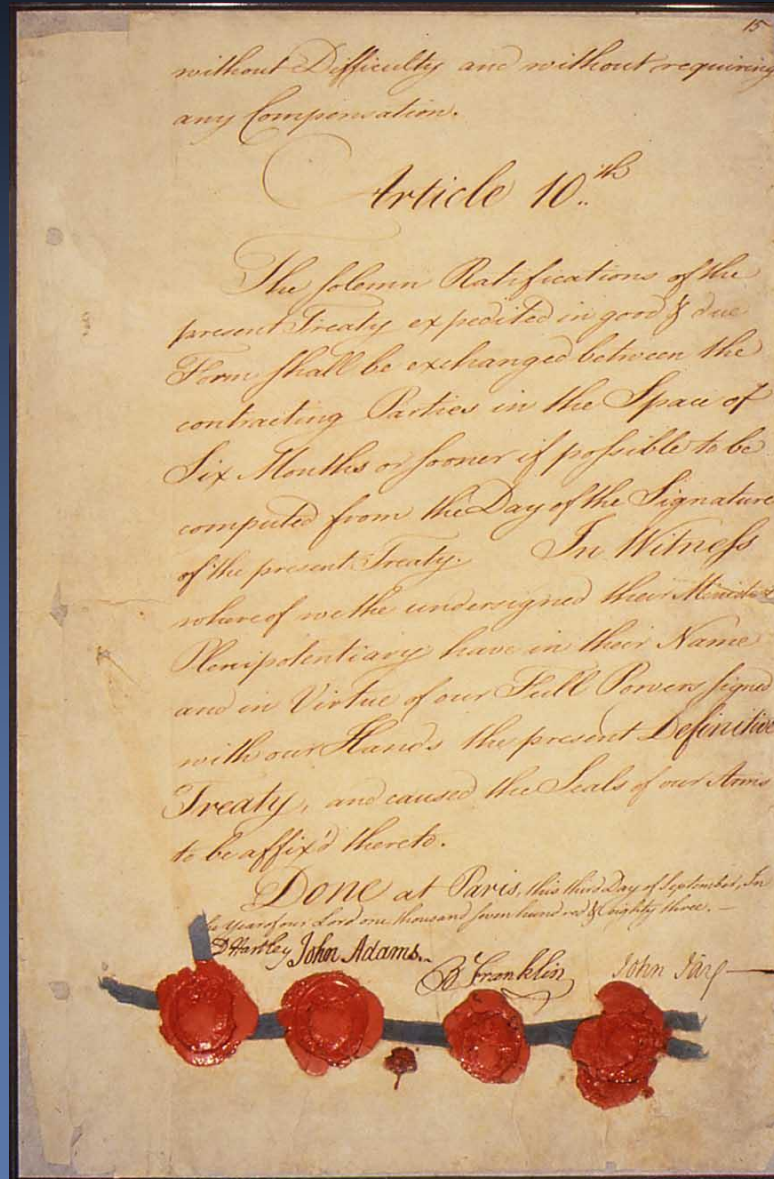 15
without Difficulty and without requiring
any Compensation.
Article 10.th
The solemn Ratifications of the
present Treaty expedited in good & due
Form shall be exchanged between the
contracting Parties in the Space of
Six Months or sooner if possible to be
computed from the Day of the Signature
of the present Treaty. In Witness
whereof we the undersigned their Ministers
Plenipotentiary have in their Name
and in Virtue of our Full Powers signed
with our Hands the present Definitive
Treaty, and caused the Seals of our Arms
to be affix'd thereto.
Done at Paris, this third Day of September, In
the Year of our Lord one thousand seven hundred & eighty three.—
D Hartley John Adams.
B Franklin John Jay—